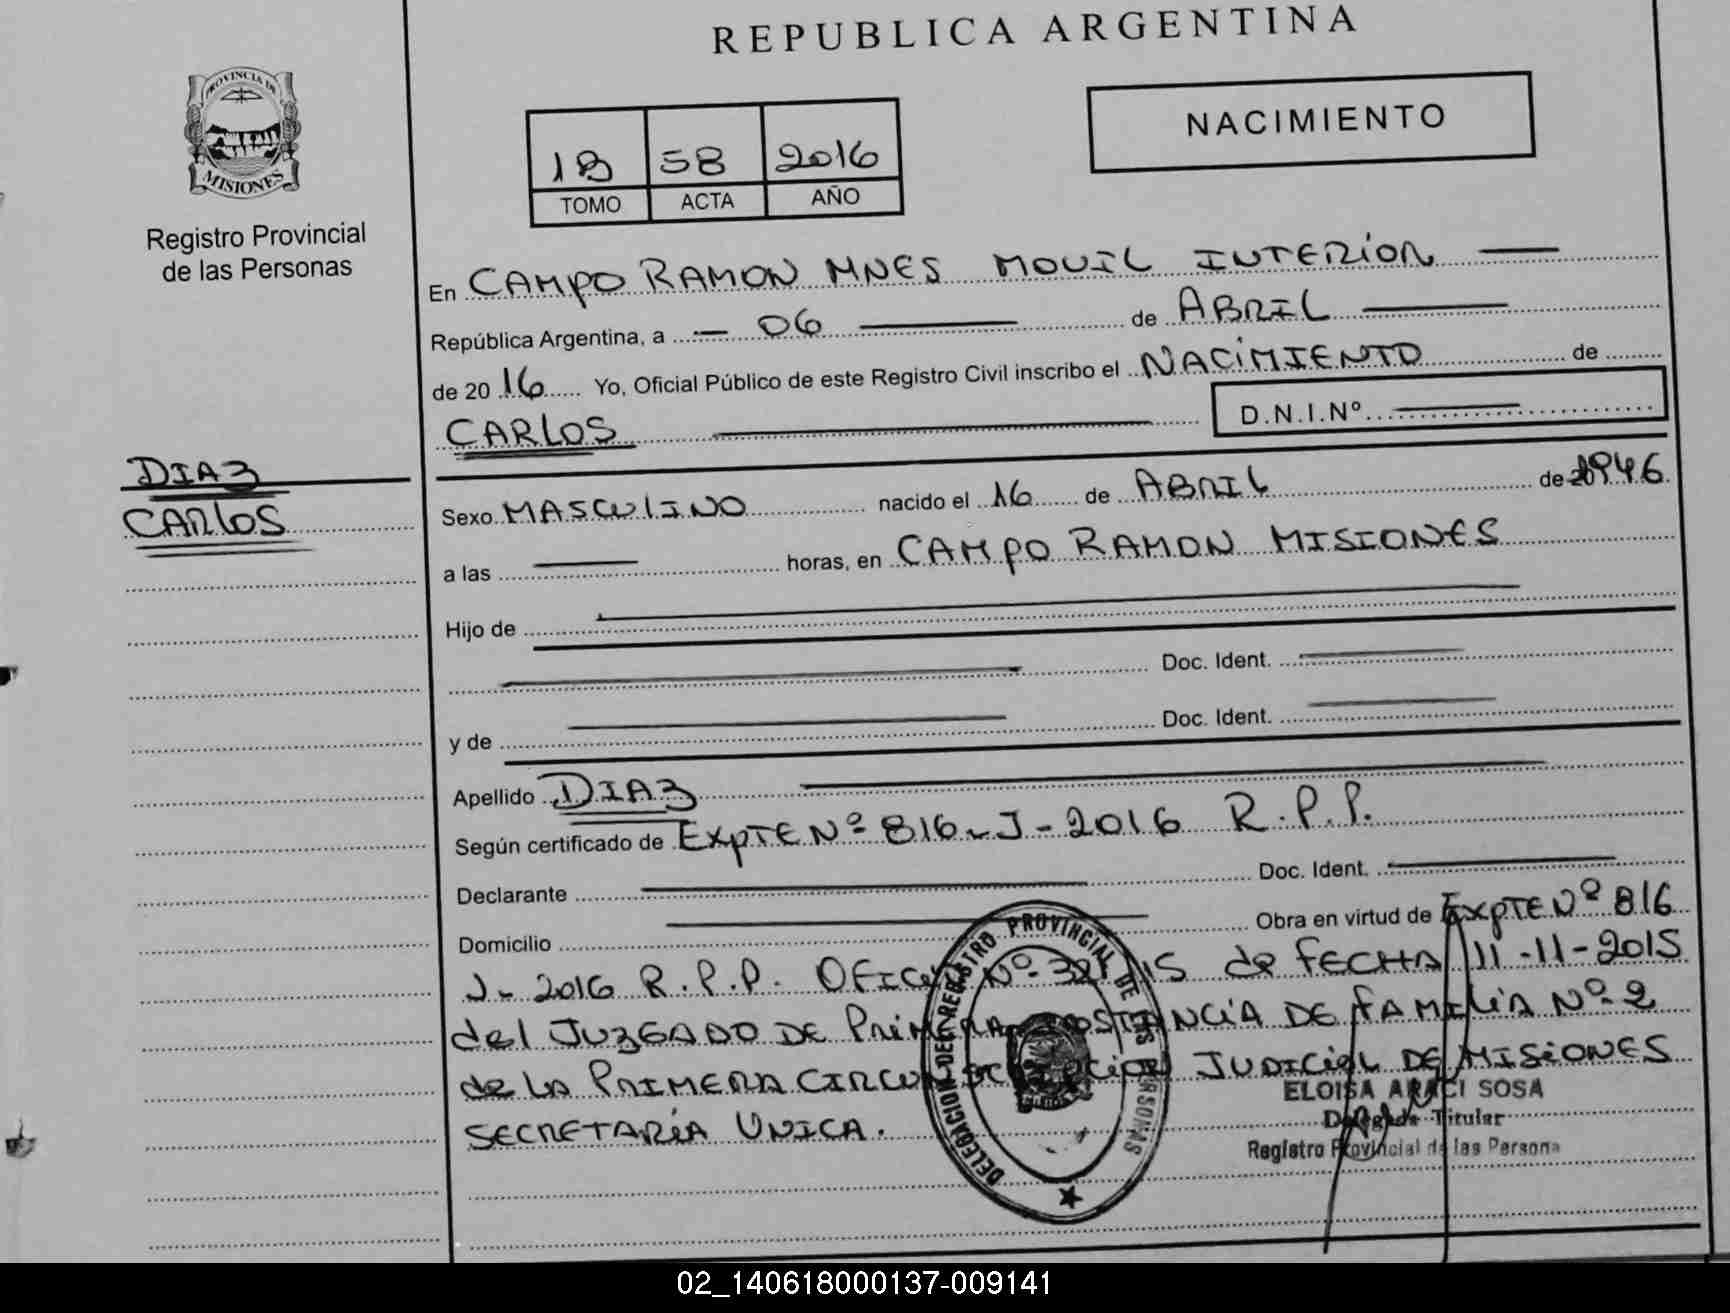 REPUBLICA ARGENTINA
PROVINCIA DE
MISIONES
Registro Provincial
de las Personas
NACIMIENTO
1B 58 2016
TOMO ACTA AÑO
En CAMPO RAMON MNES MOVIL INTERIOR
República Argentina, a 06 de ABRIL
de 2016 Yo, Oficial Público de este Registro Civil inscribo el NACIMIENTO de
CARLOS D.N.I.Nº
DIAZ
CARLOS
Sexo MASCULINO nacido el 16 de ABRIL de 1946
a las horas, en CAMPO RAMON MISIONES
Hijo de
Doc. Ident.
y de Doc. Ident.
Apellido DIAZ
Según certificado de EXPTE Nº 816-J-2016 R.P.P.
Declarante Doc. Ident.
Domicilio Obra en virtud de EXPTE Nº 816
J-2016 R.P.P. OFICIO Nº de FECHA 11-11-2015
del JUZGADO DE PRIMERA INSTANCIA DE FAMILIA Nº 2
de LA PRIMERA CIRCUNSCRIPCION JUDICIAL DE MISIONES
SECRETARÍA UNICA.
DELEGACION DEL REGISTRO PROVINCIAL DE LAS PERSONAS
ELOISA ARACI SOSA
Delegada Titular
Registro Provincial de las Persona
02_140618000137-009141